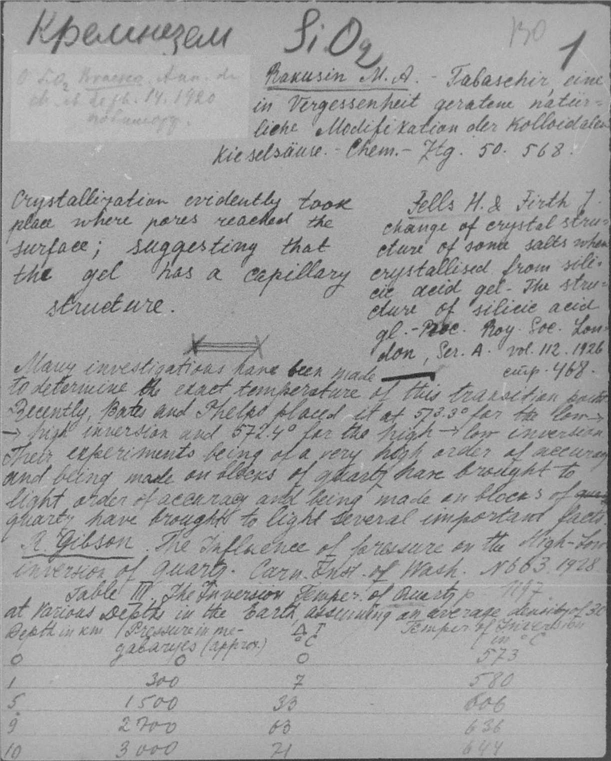 Кремнезем SiO2 130 1
O SiO2
Rakusin M. A. - Tabaschir, eine
in Vergessenheit geratene natür-
liche Modifikation der Kolloidalen
Kieselsäure. - Chem.- Ztg. 50. 568.
Crystallization evidently took
place where pores reached the
surface; suggesting that
the gel has a capillary
structure.
Fells H. & Firth J.
change of crystal stru-
cture of some salts when
crystallised from sili-
cic acid gel. - The stru-
cture of silicic acid
gl. - Proc. Roy. Soc. Lon-
don, Ser. A. vol. 112. 1926
стр. 468.
Many investigations have been made
to determine the exact temperature of this transition point
Recently, Bates and Phelps placed it at 573.3° for the low →
→ high inversion and 572.4° for the high → low inversion
Their experiments being of a very high order of accuracy
and being made on blocks of quartz have brought to
light order of accuracy and being made on blocks of
quartz have brought to light several important facts
R. Gibson. The Influence of pressure on the High-Low
inversion of quartz. Carn. Inst. of Wash. N 663. 1928
Table III. The Inversion Temper. of Quartz p. 1197
at Various Depths in the Earth assuming an average density of 30
Depth in km Pressure in me- Δ T Temper of Inversion
gabaryes (approx.) °C in °C
0 0 0 573
1 300 7 580
5 1500 33 606
9 2700 63 636
10 3000 71 644